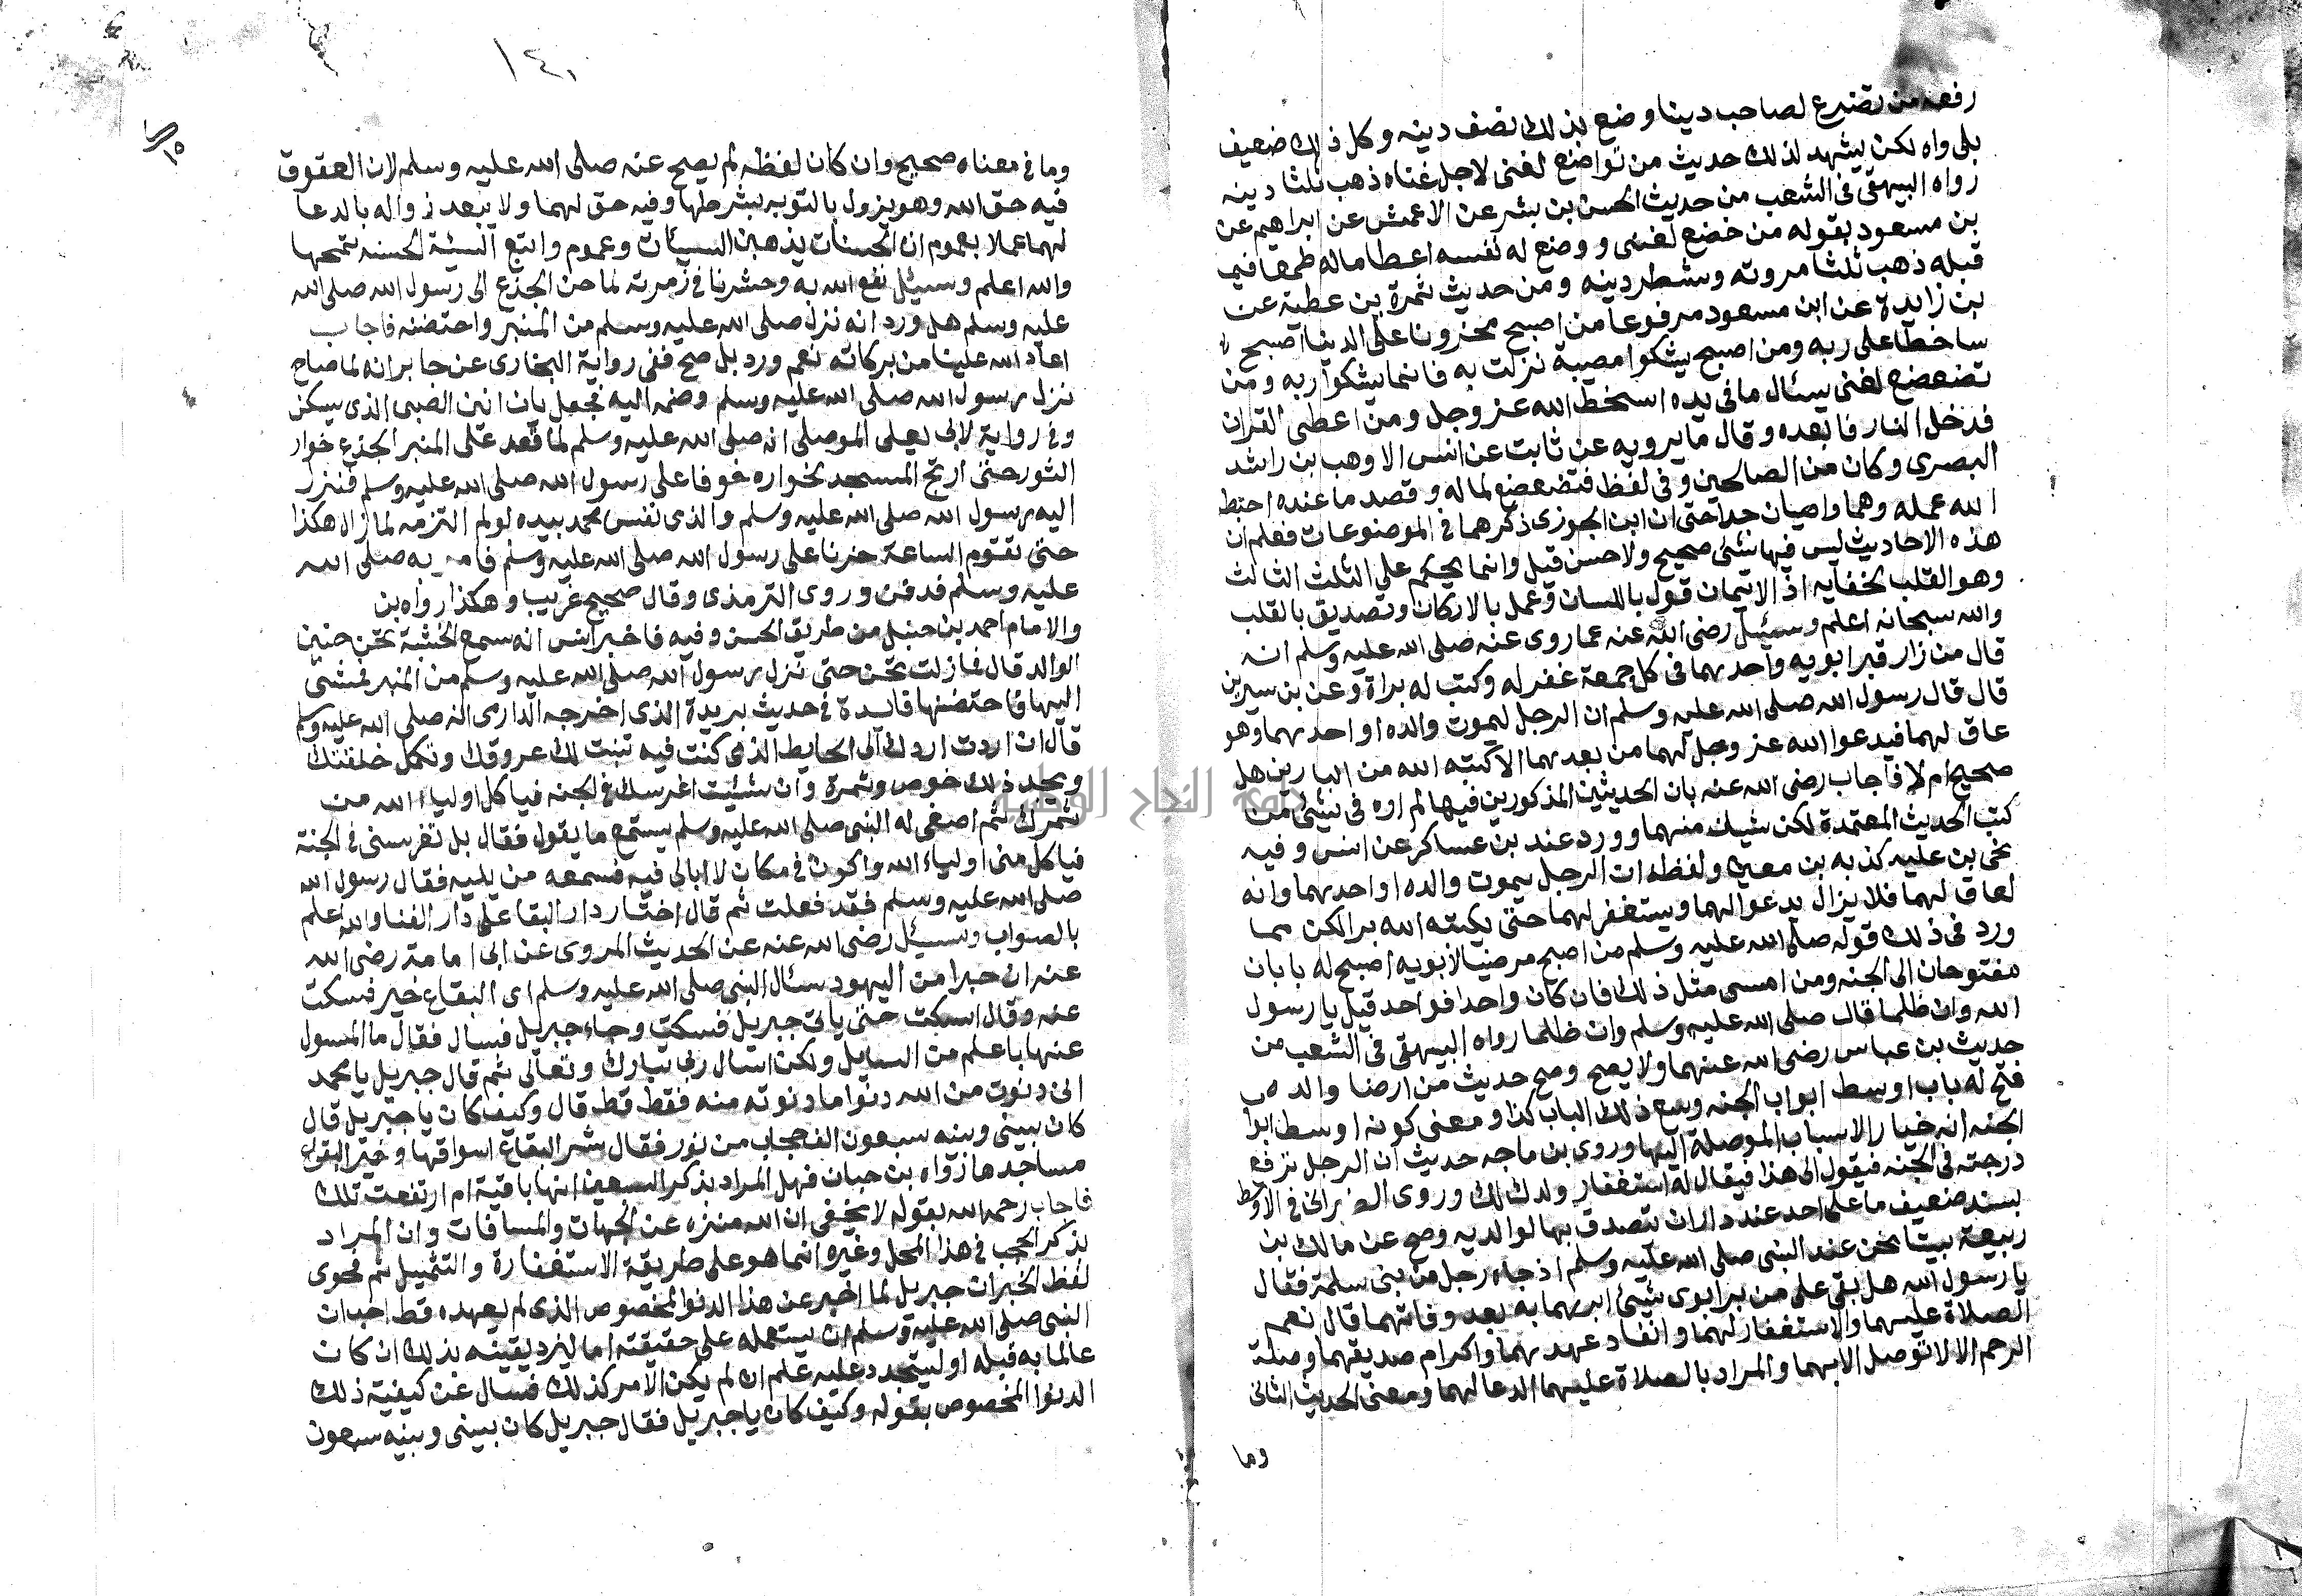 رفعه من تضرع لصاحب دينا وضع بذلك نصف دينه وكل ذلك ضعيف
بل واه لكن يشهد لذلك حديث من تواضع لغنى لاجل غناه ذهب ثلثا دينه
رواه البيهقى فى الشعب من حديث الحسن بن بشر عن الاعمش عن ابراهيم عن
بن مسعود بقوله من خضع لغنى ووضع له نفسه اعطاما له طمعا فيما
قبله ذهب ثلثا مروته وشطر دينه ومن حديث بن عطية عن
بن زايدة عن ابن مسعود مرفوعا من اصبح محزونا على الدنيا اصبح
ساخطا على ربه ومن اصبح يشكوا مصيبة نزلت به فانما يشكوا ربه ومن
تضعضع لغنى يسئال مافى يده اسخط الله عز وجل ومن اعطى القران
فدخل النار فابعده وقال مايرويه عن ثابت عن انس الا وهب بن راشد
البصرى وكان من الصالحين وفى لفظ فتضعضع لماله وقصد ما عنده احبط
الله عمله وهما واهيان جدا حتى ان ابن الجوزى ذكرهما فى الموضوعات فعلم ان
هذه الاحاديث ليس فيها شئى صحيح ولا حسن قيل وانما يحكم على الثلث الثالث
وهو القلب لخفايه اذ الايمان قول باللسان وعمل بالاركان وتصديق بالقلب
والله سبحانه اعلم وسئيل رضى الله عنه عما روى عنه صلى الله عليه وسلم انه
قال من زار قبر ابويه واحدهما فى كل جمعة غفر له وكتب له براة وعن بن سيرين
قال قال رسول الله صلى الله عليه وسلم ان الرجل ليموت والده او احدهما وهو
عاق لهما فيدعوا الله عز وجل لهما من بعدهما الا كتبه الله من البارين هل
صحيح ام لا فاجاب رضى الله عنه بان الحديثين المذكورين فيها لم اره فى شئى من
كتب الحديث المعتمدة لكن منهما وورد عند بن عساكر عن انس وفيه
يحى بن عليه كذبه بن معين ولفظه ان الرجل يموت والده او احدهما وانه
لعاق لهما فلا يزال يدعوا لهما ويستغفر لهما حتى يكتبه الله برا لكن مما
ورد فى ذلك قوله صلى الله عليه وسلم من اصبح مرضيا لابويه اصبح له بابان
مفتوحان الى الجنه ومن امسى مثل ذلك فان كان واحدا فواحد قيل يا رسول
الله وان ظلما قال صلى الله عليه وسلم وان ظلما رواه البيهقى فى الشعب من
حديث بن عباس رضى الله عنهما ولا يصح وصح حديث من ارضا والده
فتح له باب اوسط ابواب الجنه ذلك الباب كذا ومعنى كونه اوسط ابوا
الجنه انه خيار الاسباب الموصلة اليها وروى بن ماجه حديث ان الرجل ترفع
درجته فى الجنه فيقول انى هذا فيقال له استغفار ولدك لك وروى الطبرانى فى الاوسط
بسند ضعيف ما على احد عند دا ان تتصدق بها لوالديه وصح عن مالك بن
ربيعة بينا نحن عند النبى صلى الله عليه وسلم اذ جاء رجل من بنى سلمة فقال
يا رسول الله هل بقى على من بر ابوى شئى ابرهما به بعد وفاتهما قال نعم
الصلاة عليهما والاستغفار لهما وانفاد عهدهما واكرام صديقهما وصلة
الرحم الا لا توصل الابهما والمراد بالصلاة عليهما الدعا لهما ومعنى الحديث الثانى
وما
١٤٠
وما فى معناه صحيح وان كان لفظه لم يصح عنه صلى الله عليه وسلم لان العقوق
فيه حق الله وهو يزول بالتوبه بشرطها وفيه حق لهما ولا يبعد زواله بالدعا
لهما عملا بعموم ان الحسنات يذهبن السيئات وعموم واتبع السيئة الحسنه تمحها
والله اعلم وسيئل نفع الله به وحشرنا فى زمرته لما حن الجذع الى رسول الله صلى الله
عليه وسلم هل ورد انه نزل صلى الله عليه وسلم من المنبر واحتضنه فاجاب
اعاد الله علينا من بركاته نعم ورد بل صح ففى رواية البخارى عن جابر انه لما صاح
نزل رسول الله صلى الله عليه وسلم وضمه اليه فجعل يان انين الصبى الذى يسكن
وفى رواية لابى يعلى الموصلى انه صلى الله عليه وسلم لما قعد على المنبر الجذع خوار
الثور حتى ارتج المسجد بخواره على رسول الله صلى الله عليه وسلم فنزل
اليه رسول الله صلى الله عليه وسلم والذى نفس محمد بيده لو لم التزمه لما زال هكذا
حتى تقوم الساعة حزنا على رسول الله صلى الله عليه وسلم فامر به صلى الله
عليه وسلم فدفن وروى الترمذى وقال صحيح غريب وهكذا رواه بن
والامام احمد بن حنبل من طريق الحسن وفيه فاخبر انس انه سمع الخشبة تحن حنين
الوالد قال فما زلت تحن حتى نزل رسول الله صلى الله عليه وسلم من المنبر فمشى
اليها فاحتضنها فايدة فى حديث بريدة الذى اخرجه الدارى انه صلى الله عليه وسلم
قال ان اردت اردك الى الحايط الذى كنت فيه تنبت لك عروقك وتكمل خلقتك
ويجدد لك خوص وثمرة وان شئيت اغرسك فى الجنه فياكل اولياء الله من
ثمرك ثم اصغى له النبى صلى الله عليه وسلم يستمع ما يقول فقال بل تغرسنى فى الجنة
فياكل منى اولياء الله واكون فى مكان لا ابالى فيه فسمعه من يليه فقال رسول الله
صلى الله عليه وسلم فقد فعلت ثم قال اختار دار البقا على دار الفنا والله اعلم
بالصواب وسيئل رضى الله عنه عن الحديث المروى عن ابى امامة رضى الله
عنه ان حبرا من اليهود سئال النبى صلى الله عليه وسلم اى البقاع خير فسكت
عنه وقال اسكت حتى ياتى جبريل فسكت وجاء جبريل فسال فقال ما المسول
عنها باعلم من السايل ولكن اسال ربى تبارك وتعالى ثم قال جبريل يا محمد
انى دنوت من الله دنوا ما دنوته منه فقط قط قال وكيف كان يا جبريل قال
كان بينى وبينه سبعون الف حجاب من نور فقال شر البقاع اسواقها وخير البقاع
مساجدها رواه بن حبان فهل المراد بذكر السبعين انها باقية ام ارتفعت تلك
فاجاب رحمه الله بقوله لا يخفى ان الله منزه عن الجهات والمسافات وان المراد
بذكر الحجب فى هذا المحل وغيره انما هو على طريقة الاستغفارة والتمثيل ثم فحوى
لفظ الخبر ان جبريل لما اخبر عن هذا الدنو المخصوص الذى لم يعهده قط احب ان
النبى صلى الله عليه وسلم ان يستعمله على حقيقته اما ليزد يقينه بذلك ان كان
عالما به قبله او ليتجدد عليه علم ان لم يكن الامر كذلك فسال عن كيفية ذلك
الدنوا المخصوص بقوله وكيف كان يا جبريل فقال جبريل كان بينى وبينه سبعون